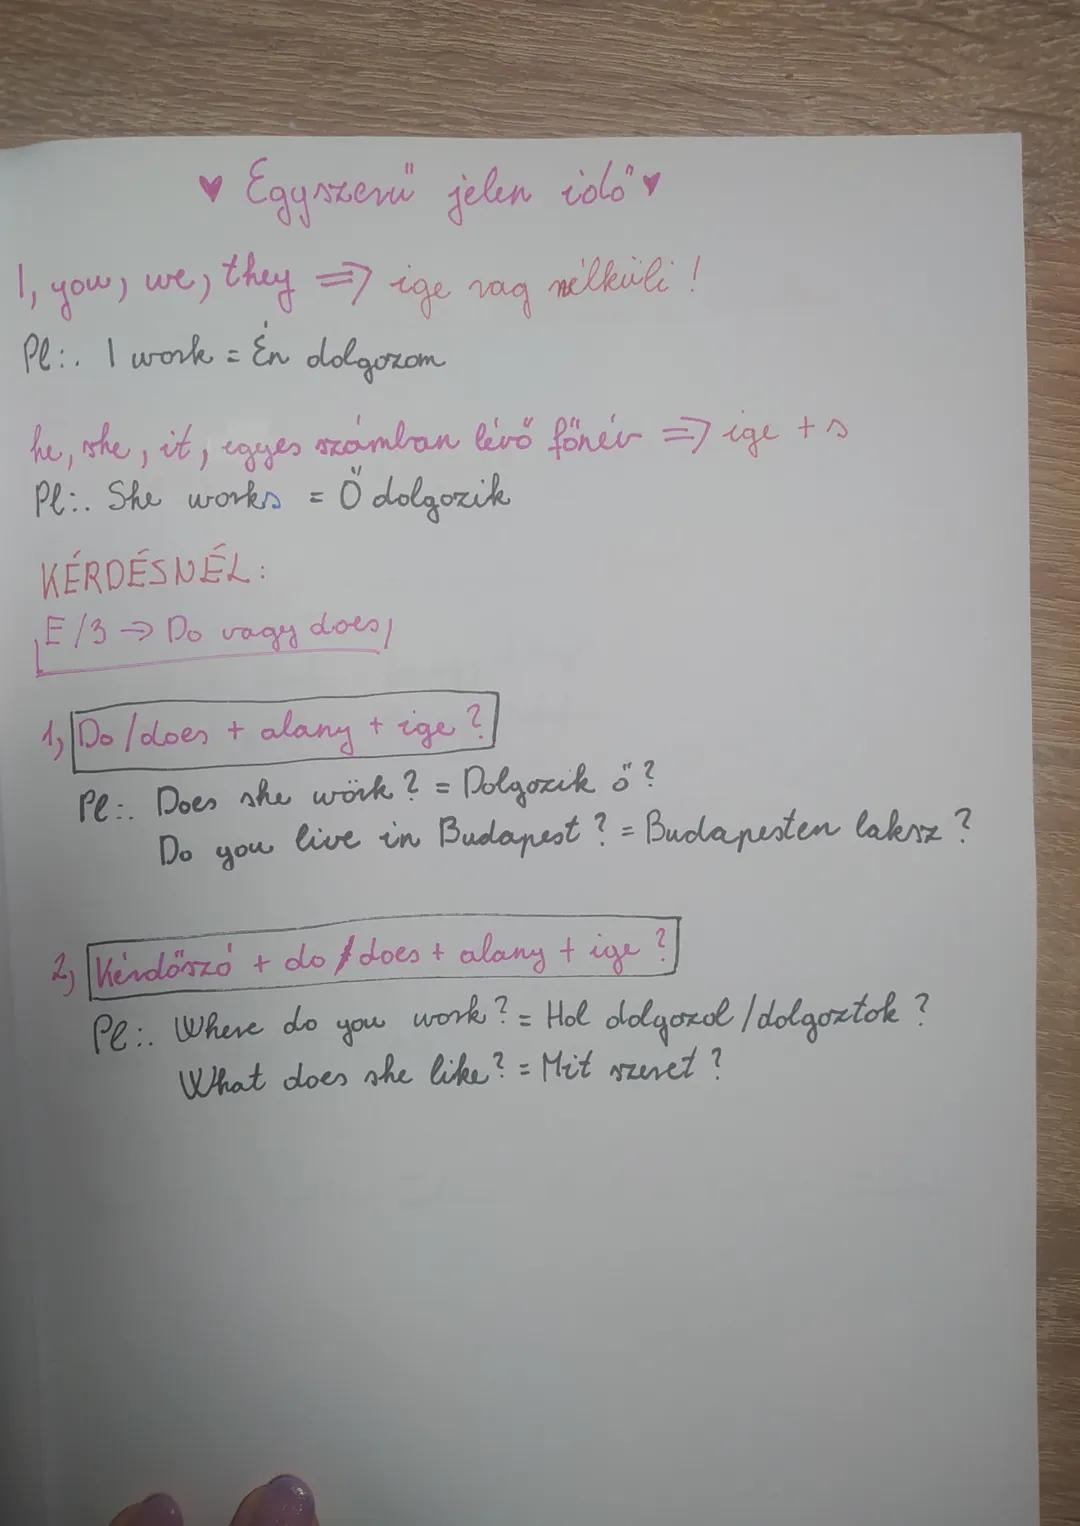 ♥ Egyszerű jelen idő ♥
I, you, we, they => ige rag nélküli!
Pl.: I work = Én dolgozom
he, she, it, egyes számban lévő főnév => ige + s
Pl.: She works = Ő dolgozik
KÉRDÉSNÉL:
E/3 -> Do vagy does
1, Do/does + alany + ige?
Pl.: Does she work? = Dolgozik ő?
Do you live in Budapest? = Budapesten laksz?
2, Kérdőszó + do/does + alany + ige?
Pl.: Where do you work? = Hol dolgozol/dolgoztok?
What does she like? = Mit szeret?